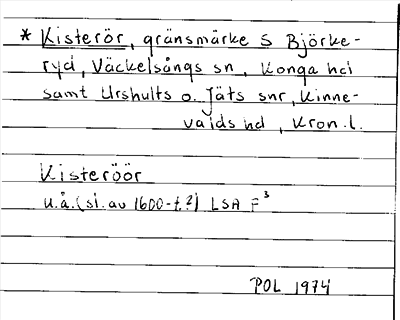 * Kisterör, gränsmärke S Björke-
ryd, Väckelsångs sn, Konga hd
samt Urshults o. Jäts snr, Kinne-
valds hd, Kron. l.
Kisteröör
u.å. (sl. av 1600-t?) LSA F³
POL 1974